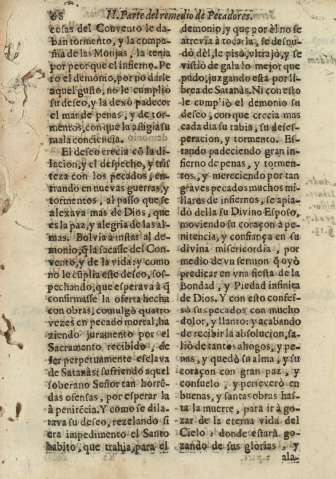 68 II. Parte del remedio de Pecadores.
cosas del Convento le da-
ban tormento, y la compa-
ñia de las Monjas, la tenia
por peor que el infierno. Pe-
ro el demonio, por no darle
aquel gusto, no le cumpliò
su deseo, y la dexò padecer
el mar de penas, y de tor-
mentos, con que la afligia su
mala conciencia.
El deseo crecia cõ la di-
lacion, y el despecho, y tris-
teza con los pecados, en-
trando en nuevas guerras, y
tormentos, al passo que se
alexava mas de Dios, que
es la paz, y alegria de las al-
mas. Bolvia à instar al de-
monio, q̃ la sacasse del Con-
vento, y de la vida: y como
no le cũplia este deseo, sos-
pechando, que esperava à q̃
confirmasse la oferta hecha
con obras, comulgò quatro
vezes en pecado mortal, ha-
ziendo juramento por el
Sacramento recibido, de
ser perpetuamente esclava
de Satanàs: sufriendo aquel
soberano Señor tan horrẽ-
das ofensas, por esperar la
à penitẽcia. Y como se dila-
tava su deseo, rezelando si
era impedimento el Santo
habito, que trahia, para el
demonio, y que por èl no se
atrevia à tocarla, se desnu-
dò dèl, le pisò, vltrajò, y se
vistiò de gala lo mejor que
pudo, juzgando esta por li-
brea de Satanàs. Ni con esto
le cumpliò el demonio su
deseo, con que crecia mas
cada dia su rabia, su deses-
peracion, y tormento. Es-
tando padeciendo gran in-
fierno de penas, y tormen-
tos, y mereciendo por tan
graves pecados muchos mi-
llares de infiernos, se apia-
dò della su Divino Esposo,
moviendo su coraçon à pe-
nitencia, y confiança en su
divina misericordia, por
medio de vn sermon q̃ oyò
predicar en vna fiesta de la
bondad, y Piedad infinita
de Dios. Y con esto confes-
sò sus pecados con mucho
dolor, y llanto: y acabando
de recibir la absolucion, sa-
liò de tantos ahogos, y pe-
nas, y quedò su alma, y su
coraçon con gran paz, y
consuelo, y perseverò en
buenas, y santas obras has-
ta la muerte, para ir à go-
zar de la eterna vida del
Cielo: donde estarà go-
zando de sus glorias, y
ala-